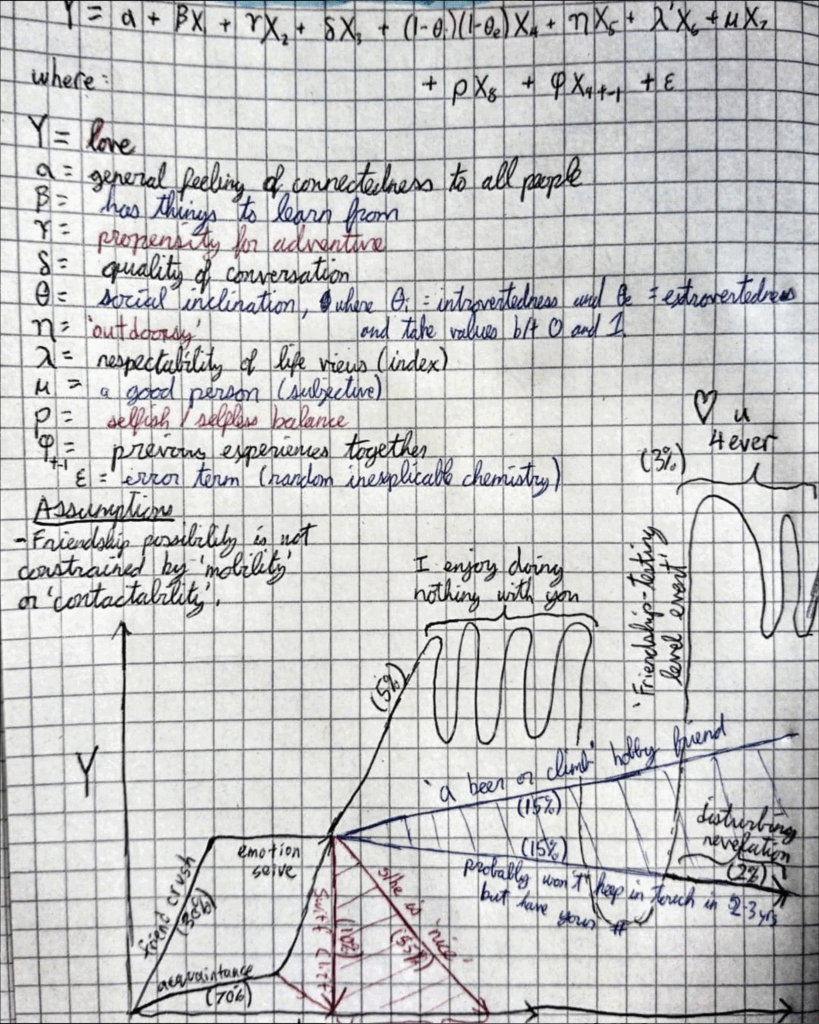 Y = α + βX₁ + γX₂ + δX₃ + (1-θᵢ)(1-θₑ)X₄ + ηX₅ + λ'X₆ + μX₇
+ ρX₈ + φX₉ₜ₋₁ + ε
where:
Y = love
α = general feeling of connectedness to all people
β = has things to learn from
γ = propensity for adventure
δ = quality of conversation
θ = social inclination, where θᵢ = introvertedness and θₑ = extrovertedness
and take values b/t 0 and 1
η = 'outdoorsy'
λ = respectability of life views (index)
μ = a good person (subjective)
ρ = selfish / selfless balance
φₜ₋₁ = previous experiences together
ε = error term (random inexplicable chemistry)
Assumptions
- Friendship possibility is not
constrained by 'mobility'
or 'contactability'.
♡ u
4ever
(3%)
'Friendship-testing
level event'
I enjoy doing
nothing with you
(5%)
Y
'a beer or climb' hobby friend
(15%)
(15%)
probably won't keep in touch in 2-3 yrs
but have your #
disturbing
revelation
(2%)
emotion
seive
friend crush
(30%)
acquaintance
(70%)
s/he is 'nice'